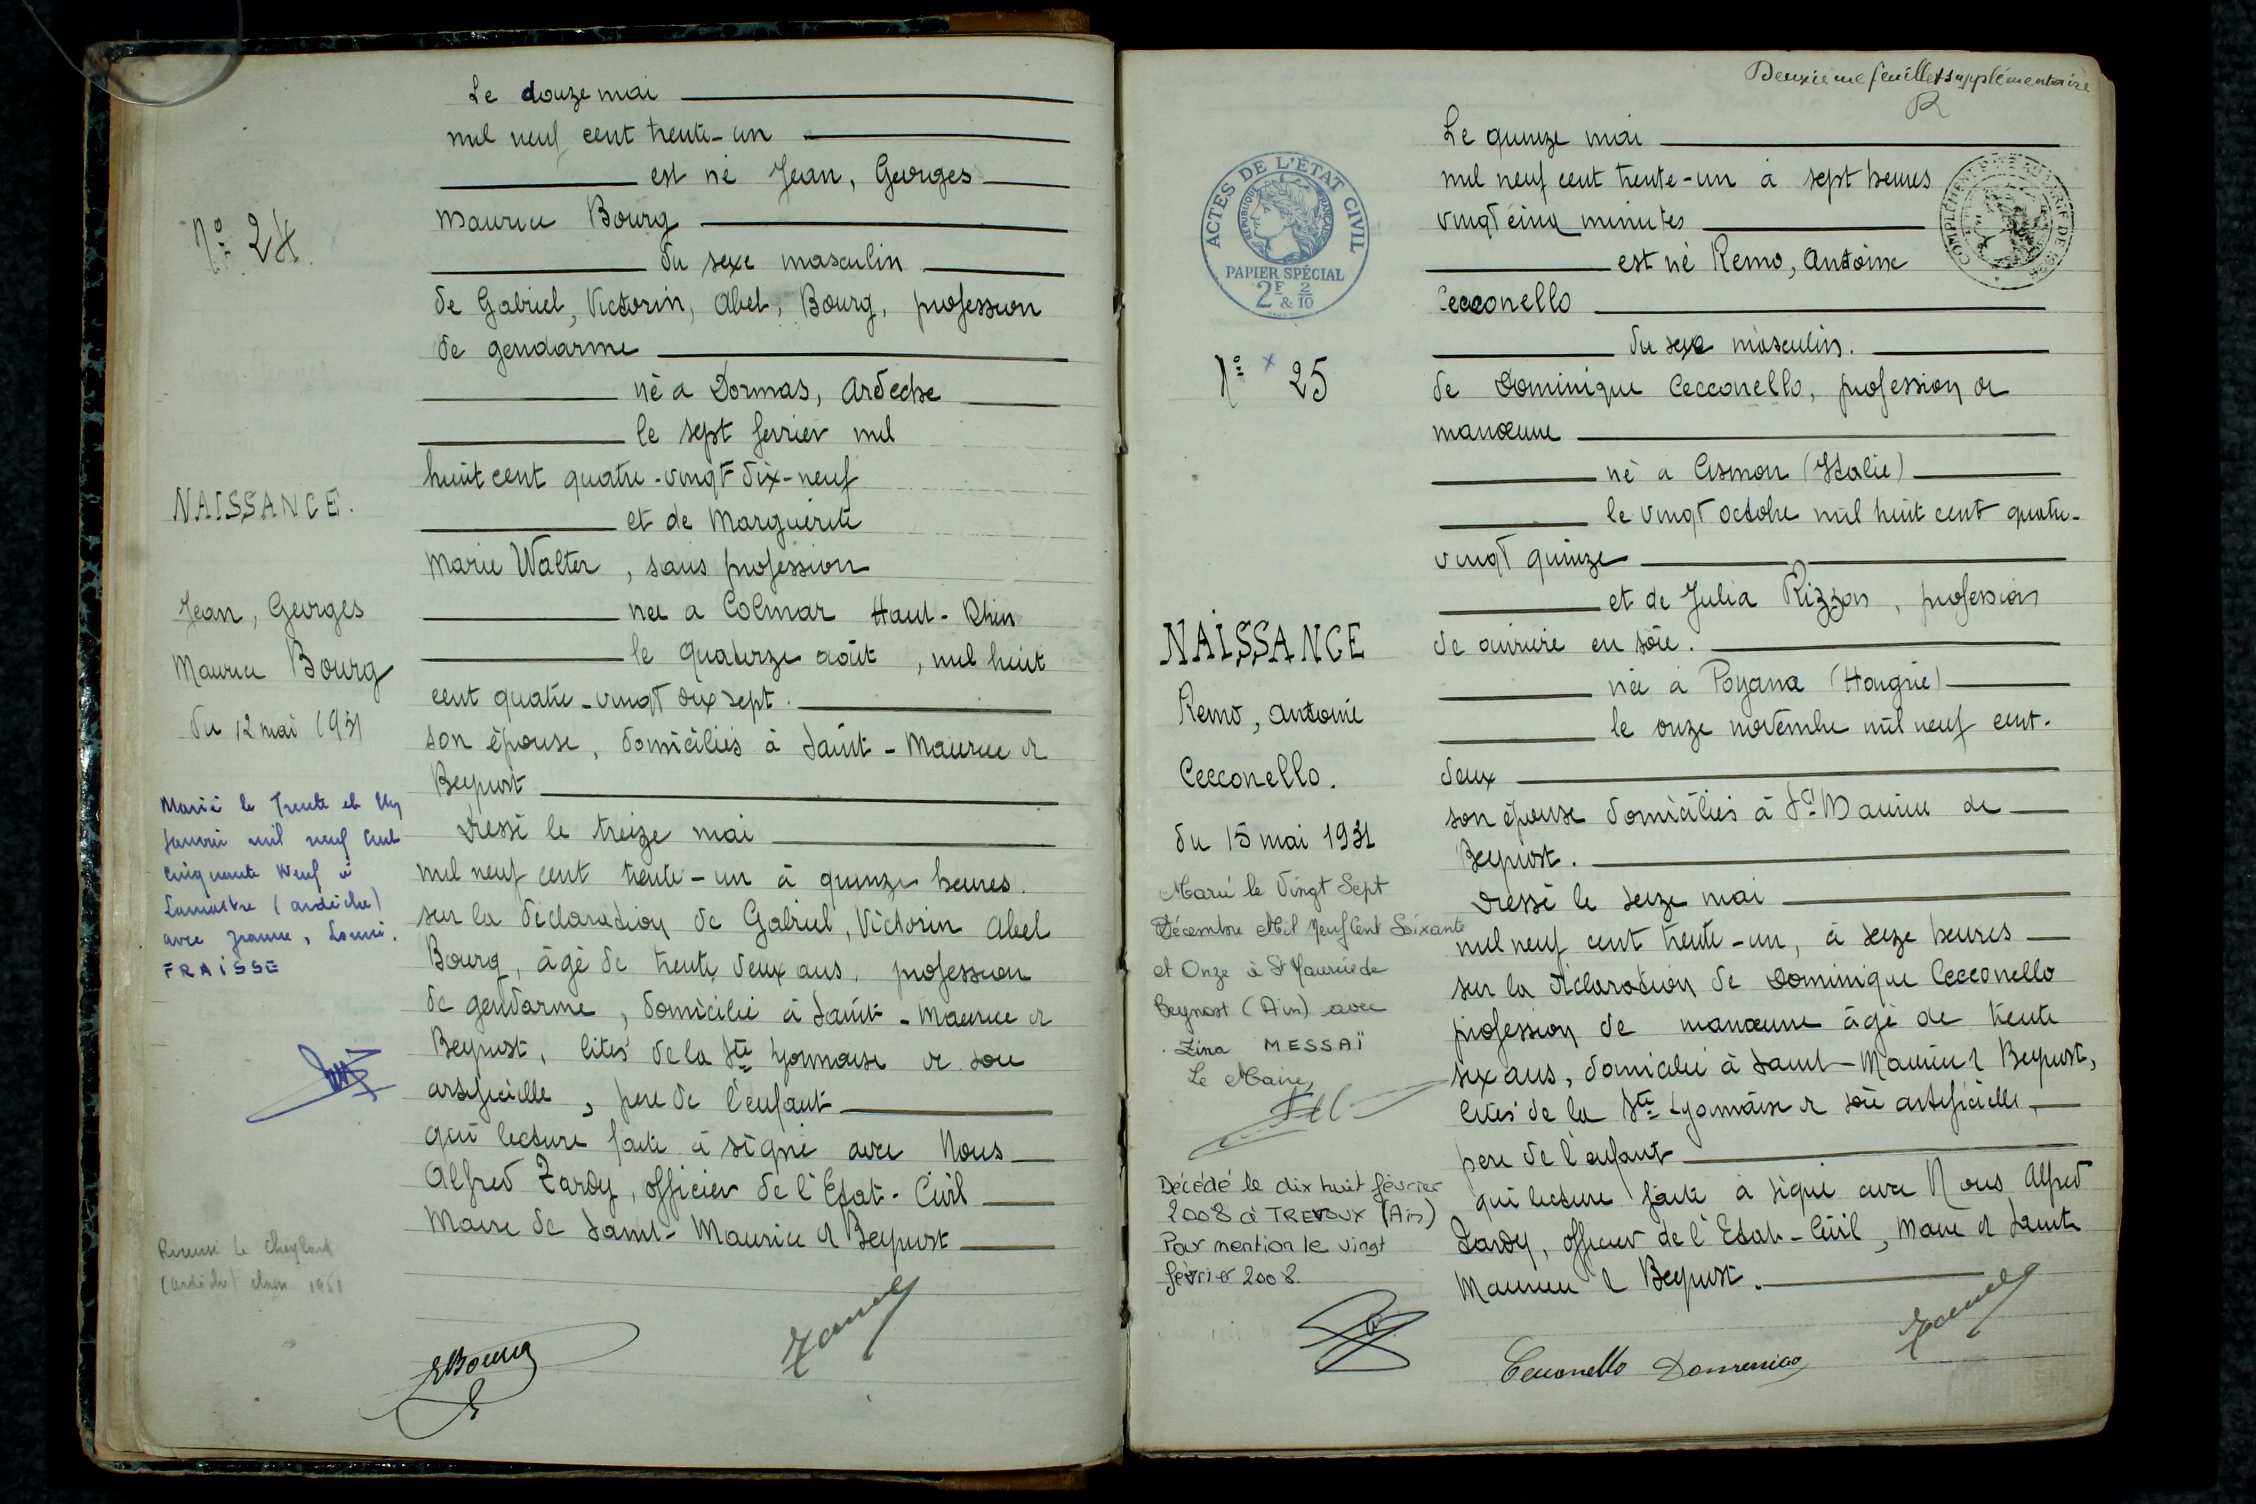 Le douze mai
mil neuf cent trente-un
est né Jean, Georges
Maurice Bourg
du sexe masculin
de Gabriel, Victorin, Abel, Bourg, profession
de gendarme
né a Dornas, Ardeche
le sept fevrier mil
huit cent quatre-vingt dix-neuf
et de Marguerite
Marie Walter, sans profession
nee a Colmar Haut-Rhin
le quatorze août, mil huit
cent quatre-vingt dix sept.
son épouse, domiciliés à Saint-Maurice de
Beynost
Dressé le treize mai
mil neuf cent trente-un à quinze heures.
sur la déclaration de Gabriel, Victorin Abel
Bourg, âgé de trente deux ans, profession
de gendarme, domicilié à Saint-Maurice de
Beynost, cités de la Sté Lyonnaise de soie
artificielle, pere de l'enfant
qui lecture faite à signé avec Nous
Alfred Zardy, officier de l'Etat-Civil
Maire de Saint-Maurice de Beynost
EBourg
N° 24
NAISSANCE.
Jean, Georges
Maurice Bourg
du 12 mai 1931
Marié le trente et Un
Janvier mil neuf cent
cinquante neuf à
Lamastre (ardèche)
avec Jeanne, Louise.
FRAISSE
Recensé le Cheylard
(Ardèche) classe 1951
Deuxième feuillet supplémentaire
R
Le quinze mai
mil neuf cent trente-un à sept heures
vingt cinq minutes
est né Remo, Antoine
Cecconello
du sexe masculin.
de Dominique Cecconello, profession de
manœuvre
né à Asmon (Italie)
le vingt octobre mil huit cent quatre-
vingt quinze
et de Julia Rizzon, profession
de ouvrière en soie.
née à Poyana (Hongrie)
le onze novembre mil neuf cent.
deux
son épouse domiciliés à St Maurice de
Beynost.
Dressé le seize mai
mil neuf cent trente-un, à seize heures
sur la déclaration de Dominique Cecconello
profession de manœuvre âgé de trente
six ans, domicilié à Saint-Maurice de Beynost,
cités de la Sté Lyonnaise de soie artificielle,
pere de l'enfant
qui lecture faite à signé avec Nous Alfred
Zardy, officier de l'Etat-Civil, Maire de Saint
Maurice de Beynost.
Cecconello Domenico
ACTES DE L'ÉTAT CIVIL
RÉPUBLIQUE FRANÇAISE
PAPIER SPÉCIAL
2F & 2/10
N° 25
NAISSANCE
Remo, Antoine
Cecconello.
du 15 mai 1931
Marié le Vingt Sept
Décembre Mil Neuf Cent Soixante
et Onze à St Maurice de
Beynost (Ain) avec
Zina MESSAÏ
Le Maire,
Décédé le dix huit février
2008 à TREVOUX (Ain)
Par mention le vingt
février 2008.